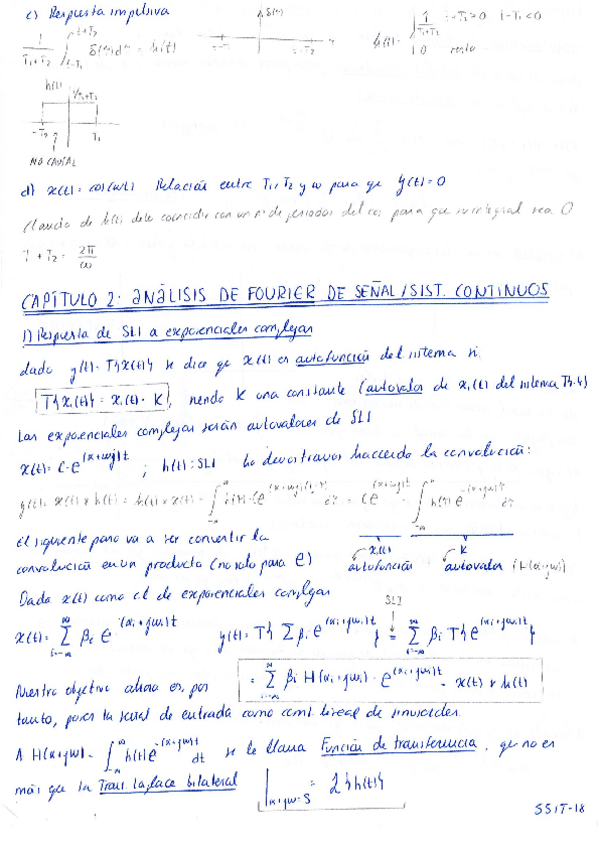 c) Respuesta impulsiva
δ(t)
1/(T₁+T₂) ∫_{t-T₁}^{t+T₂} δ(τ)dτ = h(t)
h(t) = { 1/(T₁+T₂) t-T₁>0 t-T₁<0
0 resto
h(t)
1/T₁+T₂
-T₂ T₁
NO CAUSAL
d) x(t) = cos(ωt) Relación entre T₁, T₂ y ω para qe y(t)=0
de h(t) debe coincidir con un nº de periodos del cos para que su integral sea 0
+ T₂ = 2π/ω
CAPÍTULO 2: ANÁLISIS DE FOURIER DE SEÑAL/SIST. CONTINUOS
1) Respuesta de SLI a exponenciales complejas
dado y(t) = T{x(t)} se dice qe x(t) es autofunción del sistema si:
T{x₁(t)} = x₁(t) · K, siendo K una constante (autovalor de x₁(t) del sistema T{·})
Las exponenciales complejas serán autovalores de SLI
x(t) = C·e^{(α+ωj)t} ; h(t): SLI lo demostramos haciendo la convolución:
y(t) = x(t) * h(t) = h(t) * x(t) = ∫_{-∞}^{∞} h(τ)·C e^{(α+ωj)(t-τ)} dτ = C e^{(α+ωj)t} · ∫_{-∞}^{∞} h(τ) e^{-(α+jω)τ} dτ
El siguiente paso va a ser convertir la
x(t) K
convolución en un producto (no solo para e)
autofunción autovalor (H(α+jω))
Dada x(t) como cl de exponenciales complejas
SLI
x(t) = Σ_{i=-∞}^{∞} βi e^{(αi+jωi)t} y(t) = T{Σ βi e^{(αi+jωi)t}} = Σ_{i=-∞}^{∞} βi T{e^{(αi+jωi)t}}
= Σ_{i=-∞}^{∞} βi H(αi+jωi) · e^{(αi+jωi)t} = x(t) * h(t)
Nuestro objetivo ahora es, por
tanto, poner la señal de entrada como comb. lineal de sinusoides.
A H(α+jω) = ∫_{-∞}^{∞} h(t) e^{-(α+jω)t} dt se le llama Función de transferencia, qe no es
más que la Trans. Laplace bilateral |_{α+jω=s} = L{h(t)}
SSIT-18